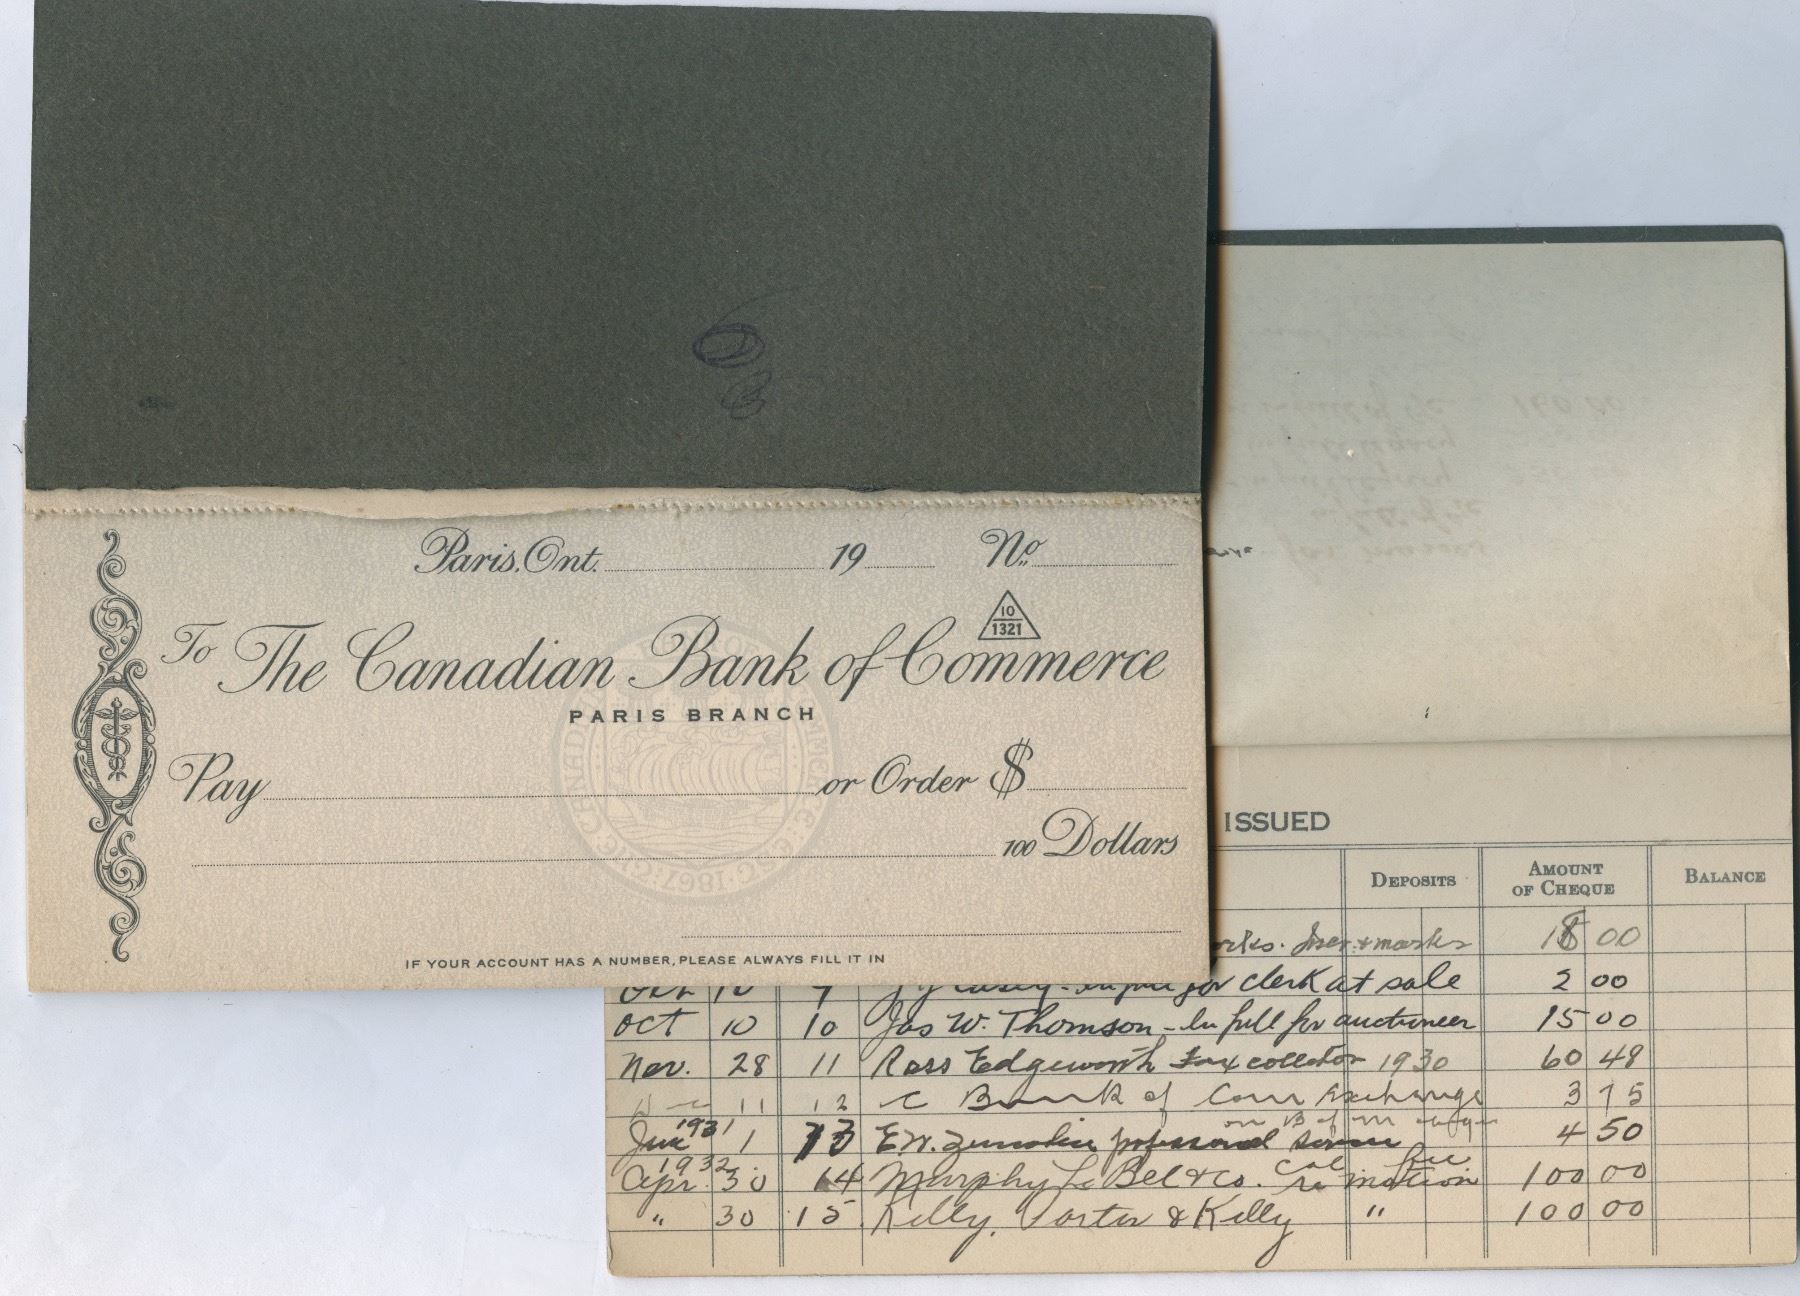 Paris, Ont. 19 No.
10
1321
To The Canadian Bank of Commerce
PARIS BRANCH
Pay or Order $
100 Dollars
IF YOUR ACCOUNT HAS A NUMBER, PLEASE ALWAYS FILL IT IN
ISSUED
DEPOSITS AMOUNT OF CHEQUE BALANCE
18 00
Oct 10 9 for clerk at sale 2 00
Oct 10 10 Jas W. Thomson - In full for auctioneer 15 00
Nov. 28 11 Ross Edgeworth tax collector 1930 60 48
11 12 C Bank of Com Exchange 3 75
on B of M
1931
1 13 professional 4 50
1932
Apr. 30 14 Murphy Le Bel & Co. 100 00
" 30 15 Kelly, Porter & Kelly " 100 00